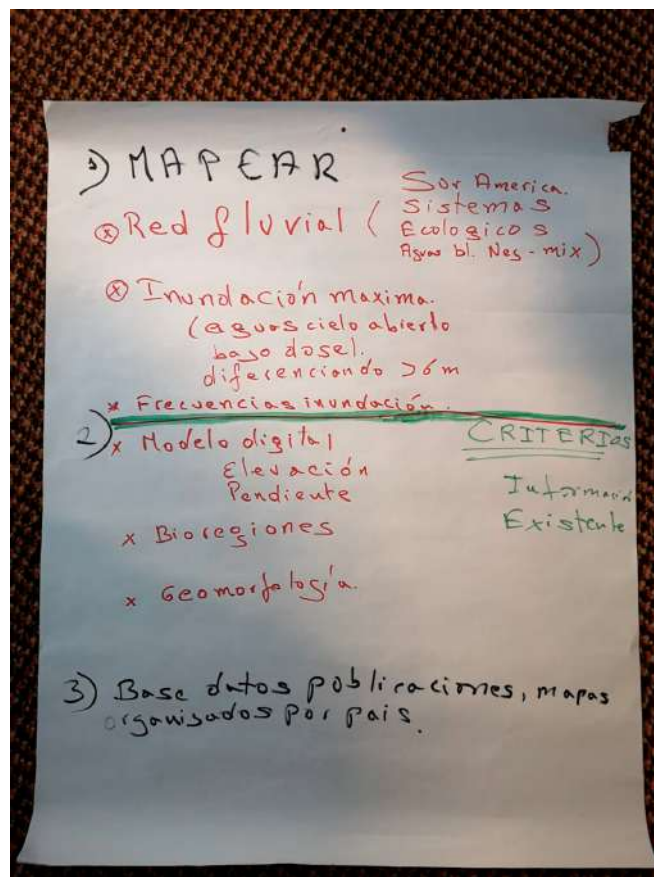 1) MAPEAR
⊗ Red fluvial (
Sur America.
Sistemas
Ecologicos
Aguas bl. Neg - mix)
⊗ Inundación maxima.
(aguas cielo abierto
bajo dosel.
diferenciando >6m
x Frecuencias inundación.
2)
x Modelo digital
Elevación
Pendiente
CRITERIOS
Información
Existente
x Bioregiones
x Geomorfología.
3) Base datos publicaciones, mapas
organisados por pais.